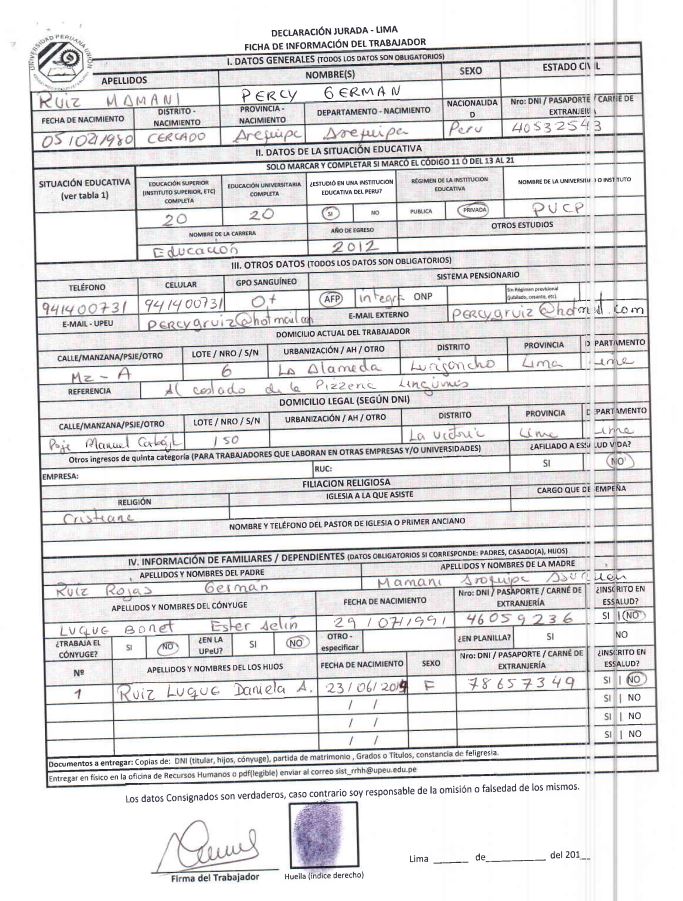 UNIVERSIDAD PERUANA UNION
DECLARACIÓN JURADA - LIMA
FICHA DE INFORMACIÓN DEL TRABAJADOR
I. DATOS GENERALES (TODOS LOS DATOS SON OBLIGATORIOS)
APELLIDOS NOMBRE(S) SEXO ESTADO CIVIL
RUIZ MAMANI PERCY GERMAN
FECHA DE NACIMIENTO DISTRITO - NACIMIENTO PROVINCIA - NACIMIENTO DEPARTAMENTO - NACIMIENTO NACIONALIDAD Nro: DNI / PASAPORTE / CARNÉ DE EXTRANJERIA
05/02/1980 CERCADO Arequipa Arequipa Peru 40532543
II. DATOS DE LA SITUACIÓN EDUCATIVA
SOLO MARCAR Y COMPLETAR SI MARCÓ EL CÓDIGO 11 Ó DEL 13 AL 21
SITUACIÓN EDUCATIVA (ver tabla 1) EDUCACIÓN SUPERIOR (INSTITUTO SUPERIOR, ETC) COMPLETA EDUCACIÓN UNIVERSITARIA COMPLETA ¿ESTUDIÓ EN UNA INSTITUCION EDUCATIVA DEL PERU? RÉGIMEN DE LA INSTITUCION EDUCATIVA NOMBRE DE LA UNIVERSIDAD O INSTITUTO
20 20 SI NO PUBLICA PRIVADA PUCP
NOMBRE DE LA CARRERA AÑO DE EGRESO OTROS ESTUDIOS
Educación 2012
III. OTROS DATOS (TODOS LOS DATOS SON OBLIGATORIOS)
TELÉFONO CELULAR GPO SANGUÍNEO SISTEMA PENSIONARIO
941400731 941400731 O+ AFP integra ONP Sin Régimen previsional (jubilado, cesante, etc).
E-MAIL - UPEU percygruiz@hotmail.com E-MAIL EXTERNO percygruiz@hotmail.com
DOMICILIO ACTUAL DEL TRABAJADOR
CALLE/MANZANA/PSJE/OTRO LOTE / NRO / S/N URBANIZACIÓN / AH / OTRO DISTRITO PROVINCIA DEPARTAMENTO
Mz - A 6 La Alameda Lurigancho Lima Lima
REFERENCIA Al costado de la Pizzeria
DOMICILIO LEGAL (SEGÚN DNI)
CALLE/MANZANA/PSJE/OTRO LOTE / NRO / S/N URBANIZACIÓN / AH / OTRO DISTRITO PROVINCIA DEPARTAMENTO
Psje Manuel 150 La Victoria Lima Lima
Otros ingresos de quinta categoría (PARA TRABAJADORES QUE LABORAN EN OTRAS EMPRESAS Y/O UNIVERSIDADES) ¿AFILIADO A ESSALUD VIDA?
EMPRESA: RUC: SI NO
FILIACION RELIGIOSA
RELIGIÓN IGLESIA A LA QUE ASISTE CARGO QUE DESEMPEÑA
Cristiana
NOMBRE Y TELÉFONO DEL PASTOR DE IGLESIA O PRIMER ANCIANO
IV. INFORMACIÓN DE FAMILIARES / DEPENDIENTES (DATOS OBLIGATORIOS SI CORRESPONDE: PADRES, CASADO(A), HIJOS)
APELLIDOS Y NOMBRES DEL PADRE APELLIDOS Y NOMBRES DE LA MADRE
Ruiz Rojas German Mamani Arequipa
APELLIDOS Y NOMBRES DEL CÓNYUGE FECHA DE NACIMIENTO Nro: DNI / PASAPORTE / CARNÉ DE EXTRANJERIA ¿INSCRITO EN ESSALUD?
Luque Bonet Ester Selin 29/07/1991 46059236 SI NO
¿TRABAJA EL CÓNYUGE? SI NO ¿EN LA UPeU? SI NO OTRO - especificar ¿EN PLANILLA? SI NO
Nº APELLIDOS Y NOMBRES DE LOS HIJOS FECHA DE NACIMIENTO SEXO Nro: DNI / PASAPORTE / CARNÉ DE EXTRANJERIA ¿INSCRITO EN ESSALUD?
1 Ruiz Luque Daniela A. 23/06/2014 F 78657349 SI NO
/ / SI NO
/ / SI NO
/ / SI NO
Documentos a entregar: Copias de: DNI (titular, hijos, cónyuge), partida de matrimonio , Grados o Títulos, constancia de feligresia.
Entregar en físico en la oficina de Recursos Humanos o pdf(legible) enviar al correo sist_rrhh@upeu.edu.pe
Los datos Consignados son verdaderos, caso contrario soy responsable de la omisión o falsedad de los mismos.
Firma del Trabajador Huella (índice derecho) Lima ______ de__________ del 201__